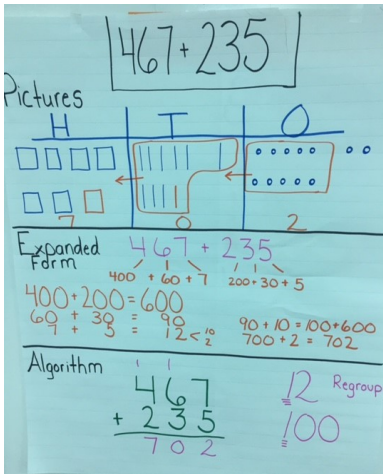 467 + 235
Pictures
H T O
7 0 2
Expanded Form 467 + 235
400 + 60 + 7 200 + 30 + 5
400 + 200 = 600
60 + 30 = 90
7 + 5 = 12 < 10 2
90 + 10 = 100 + 600
700 + 2 = 702
Algorithm
1 1
467
+ 235
702
12 Regroup
100